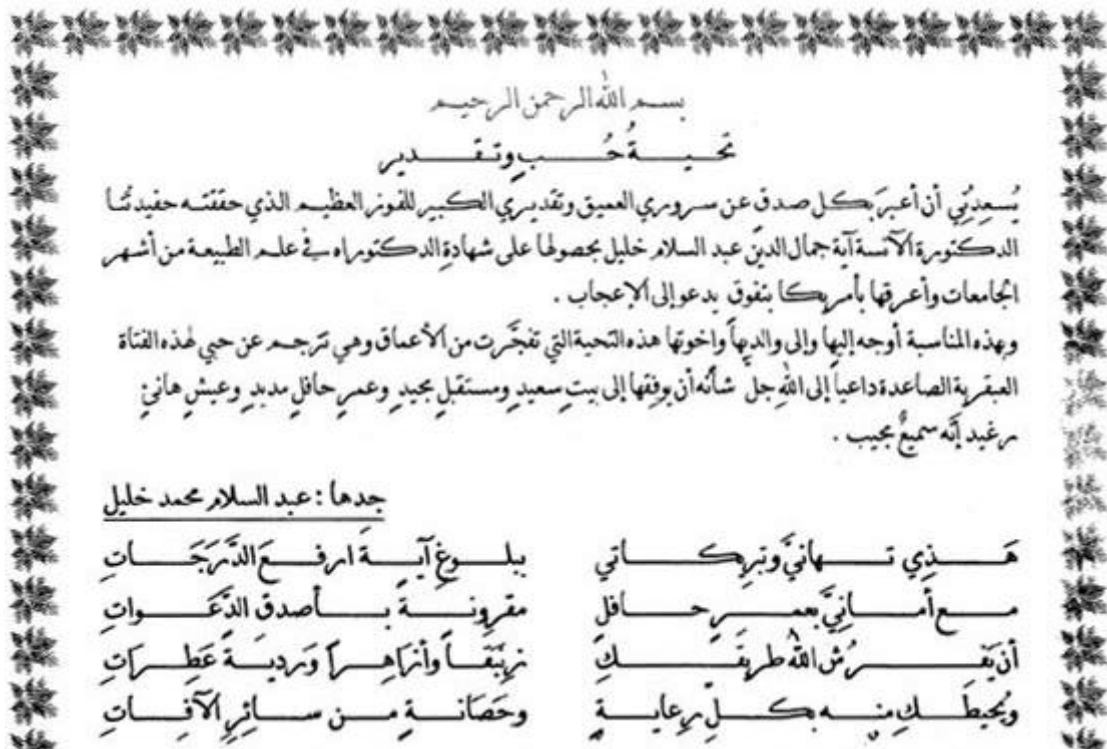 بسم الله الرحمن الرحيم
تحيةُ حُبٍ وتقدير
يُسعِدُنِي أن أعبرَ بكل صدق عن سروري العميق وتقديري الكبير للفوز العظيم الذي حققته حفيدتنا
الدكتورة الآنسة آية جمال الدين عبد السلام خليل بحصولها على شهادةِ الدكتوراه في علم الطبيعة من أشهر
الجامعات وأعرقها بأمريكا بتفوق يدعو إلى الإعجاب .
وبهذه المناسبة أوجه إليها وإلى والديها واخوتها هذه التحية التي تفجَّرت من الأعماق وهي تترجم عن حبي لهذه الفتاة
العبقرية الصاعدة داعياً إلى اللهِ جلَّ شأنُه أن يوفقها إلى بيتٍ سعيدٍ ومستقبلٍ مجيدٍ وعمرٍ حافلٍ مديدٍ وعيشٍ هانئٍ
رغيد إنَّه سميعٌ مجيب .
جدها : عبد السلام محمد خليل
هَذِي تهانيَّ وتبريكاتي ببلوغِ آيةَ ارفعَ الدَّرَجَاتِ
مع أمانيَّ بعمرٍ حافلٍ مقرونةً بأصدقِ الدَّعَواتِ
أن يَفرُشَ اللهُ طريقَكِ زنبَقاً وأزاهراً وَرديةً عَطِراتِ
ويُحيطَكِ منه بكلِّ رعايةٍ وحَصَانةٍ من سائرِ الآفاتِ